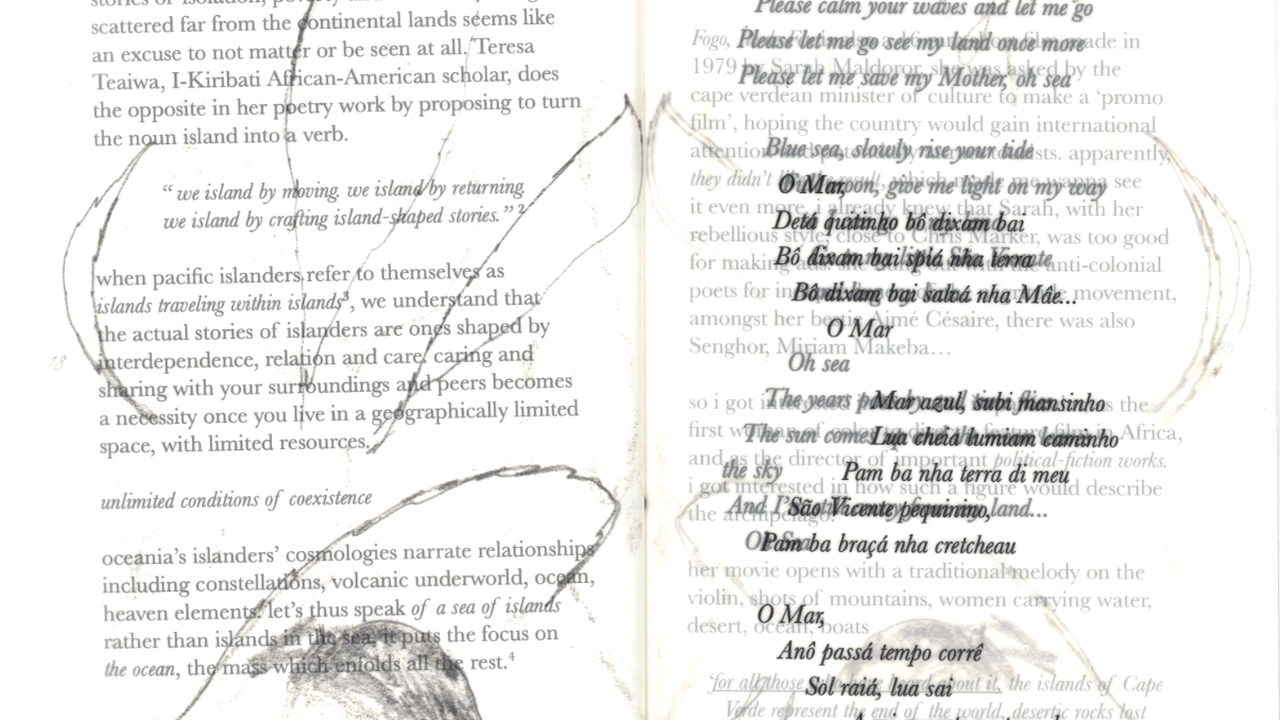 scattered far from the continental lands seems like
an excuse to not matter or be seen at all. Teresa
Teaiwa, I-Kiribati African-American scholar, does
the opposite in her poetry work by proposing to turn
the noun island into a verb.
“ we island by moving. we island by returning.
we island by crafting island-shaped stories.” 2
when pacific islanders refer to themselves as
islands traveling within islands3, we understand that
the actual stories of islanders are ones shaped by
interdependence, relation and care. caring and
sharing with your surroundings and peers becomes
a necessity once you live in a geographically limited
space, with limited resources.
18
unlimited conditions of coexistence
oceania’s islanders’ cosmologies narrate relationships
including constellations, volcanic underworld, ocean,
heaven elements. let’s thus speak of a sea of islands
rather than islands in the sea. it puts the focus on
the ocean, the mass which enfolds all the rest.4
Please calm your waves and let me go
Please let me go see my land once more
Please let me save my Mother, oh sea
Blue sea, slowly rise your tide
moon, give me light on my way
Oh sea
The years
The sun comes
the sky
And land...
O Mar,
Detá quitinho bô dixam bai
Bô dixam bai spiá nha terra
Bô dixam bai salvá nha Mâe...
O Mar
Mar azul, subi mansinho
Lua cheia lumiam caminho
Pam ba nha terra di meu
São Vicente pequinino,
Pam ba braçá nha cretcheau
O Mar,
Anô passá tempo corrê
Sol raiá, lua sai
Fogo, film made in
1979 by Sarah Maldoror, she was asked by the
cape verdean minister of culture to make a ‘promo
film’, hoping the country would gain international
attention apparently,
they didn’t like the result, which made me wanna see
it even more. i already knew that Sarah, with her
rebellious style, close to Chris Marker, was too good
for making ads. anti-colonial
poets for movement,
amongst her bestie Aimé Césaire, there was also
Senghor, Miriam Makeba…
so i got the
first woman of color film in Africa,
and as the director of important political-fiction works.
i got interested in how such a figure would describe
the archipelago.
her movie opens with a traditional melody on the
violin, shots of mountains, women carrying water,
desert, ocean, boats
‘for all those who have heard about it, the islands of Cape
Verde represent the end of the world, desertic rocks lost